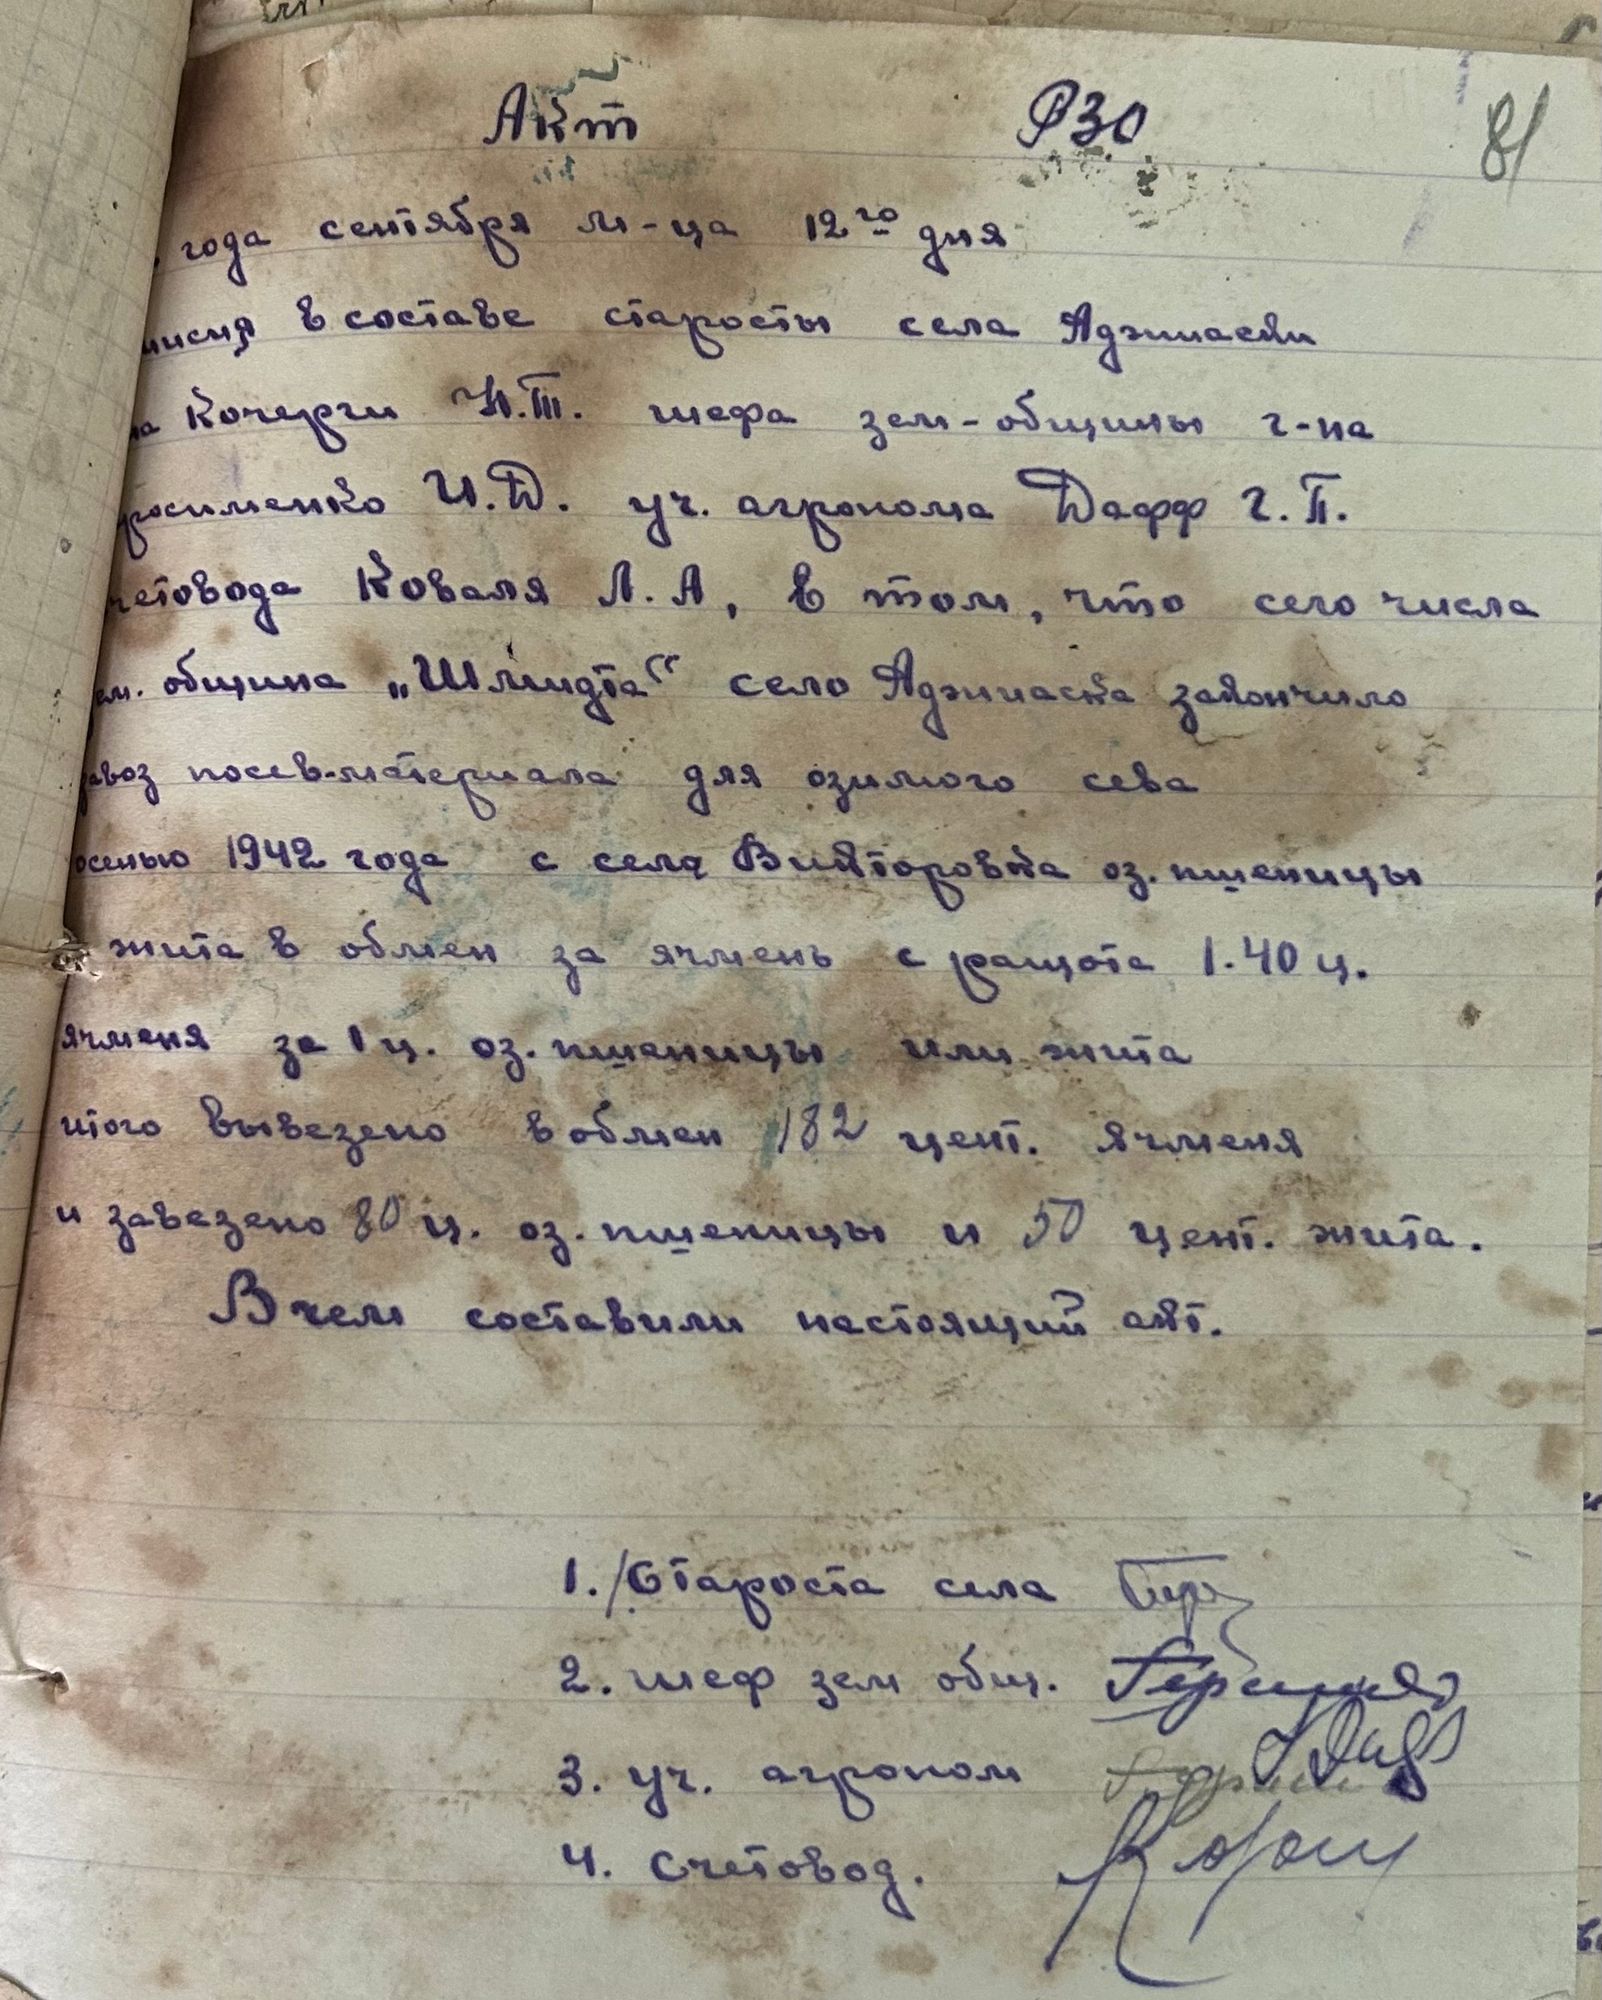 Акт РЗО 81
года сентября м-ца 12го дня
в составе старосты села Аджиаски
Кочерги И.Т. шефа зем-общины г-на
И.Д. уч. агронома Дафф Г.П.
четовода Коваля Л.А, в том, что сего числа
община „Шмидта“ село Аджиаска закончило
завоз посев-материала для озимого сева
осенью 1942 года с села Викторовка оз. пшеницы
жита в обмен за ячмень с ращота 1.40 ц.
ячменя за 1 ц. оз. пшеницы или жита
итого вывезено в обмен 182 цент. ячменя
и завезено 80 ц. оз. пшеницы и 50 цент. жита.
В чем составили настоящий акт.
1. Староста села
2. шеф зем общ.
3. уч. агроном
4. Счетовод.